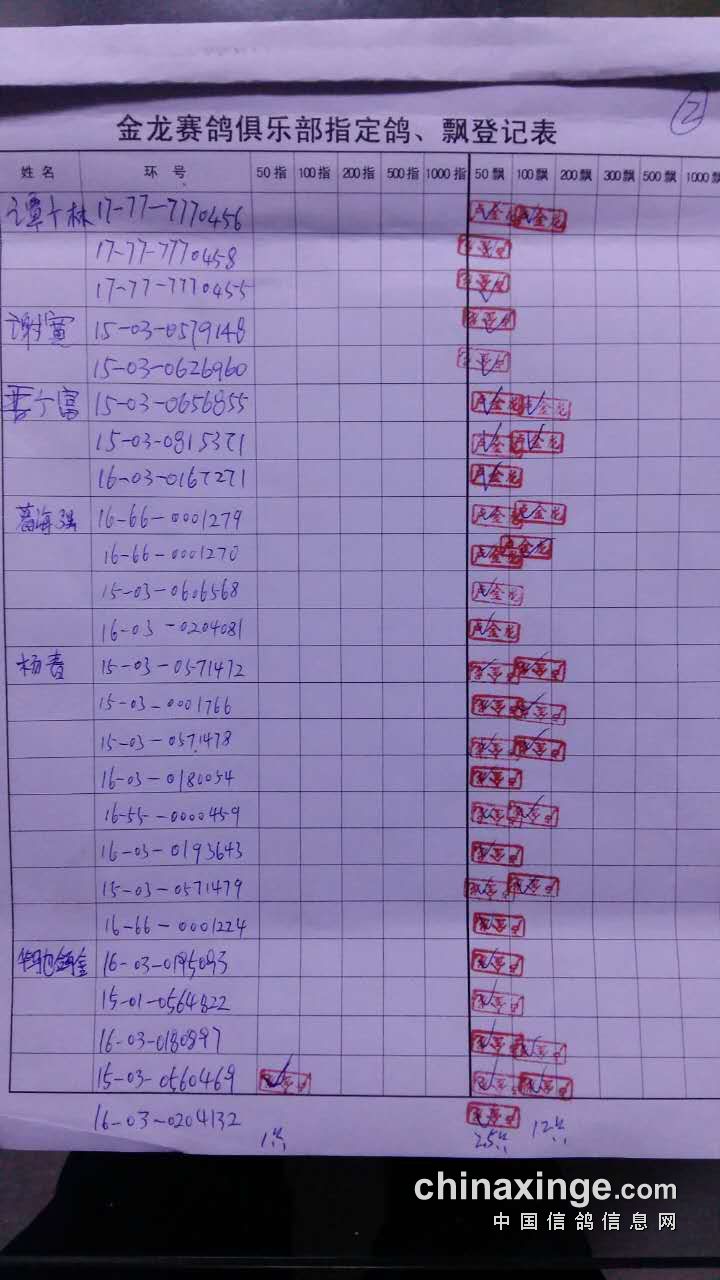 ②
金龙赛鸽俱乐部指定鸽、飘登记表
姓名 环号 50指 100指 200指 500指 1000指 50飘 100飘 200飘 300飘 500飘 1000飘
谭 林 17-77-7770456
17-77-7770458
17-77-7770455
谢 15-03-0579148
15-03-0626960
富 15-03-0656855
15-03-0815371
16-03-0167271
葛海强 16-66-0001279
16-66-0001270
15-03-0606568
16-03-0204081
杨春 15-03-0571472
15-03-0001766
15-03-0571478
16-03-0180054
16-55-0000459
16-03-0193643
15-03-0571479
16-66-0001224
16-03-0195093
15-01-0564822
16-03-0180897
15-03-0560469
16-03-0204132
1 25 12
chinaxinge.com
中国信鸽信息网